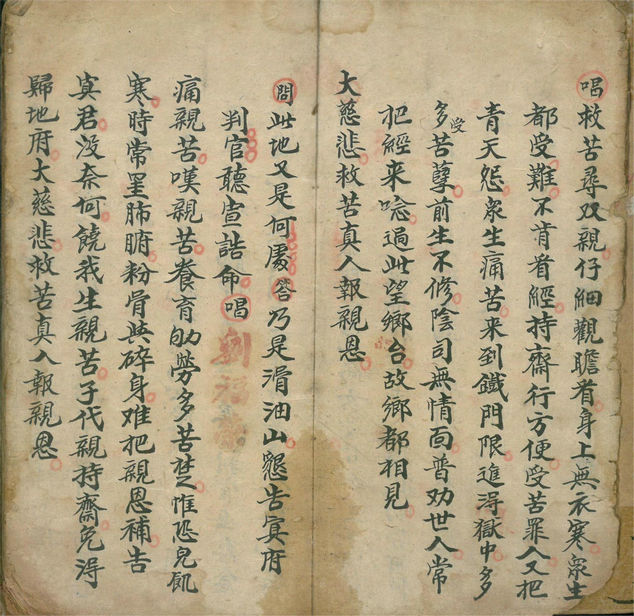 唱救苦尋双親仔細觀瞻看身上無衣寒眾生
都受難不肯看經持齋行方便受苦罪人又把
青天怨眾生痛苦来到鐵門限進淂獄中多
多受苦孽前生不修陰司無情面普劝世人常
把經来唸過此望鄉台故鄉都相見
大慈悲救苦真人報親恩
問此地又是何處答乃是滑油山懇告冥府
判官聽宣誥命唱
劉福
痛親苦嘆親苦養育劬勞多苦楚惟恐兒飢
寒時常罣肺腑粉骨共碎身难把親恩補告
冥君没奈何饒我生親苦子代親持齋免淂
歸地府大慈悲救苦真人報親恩